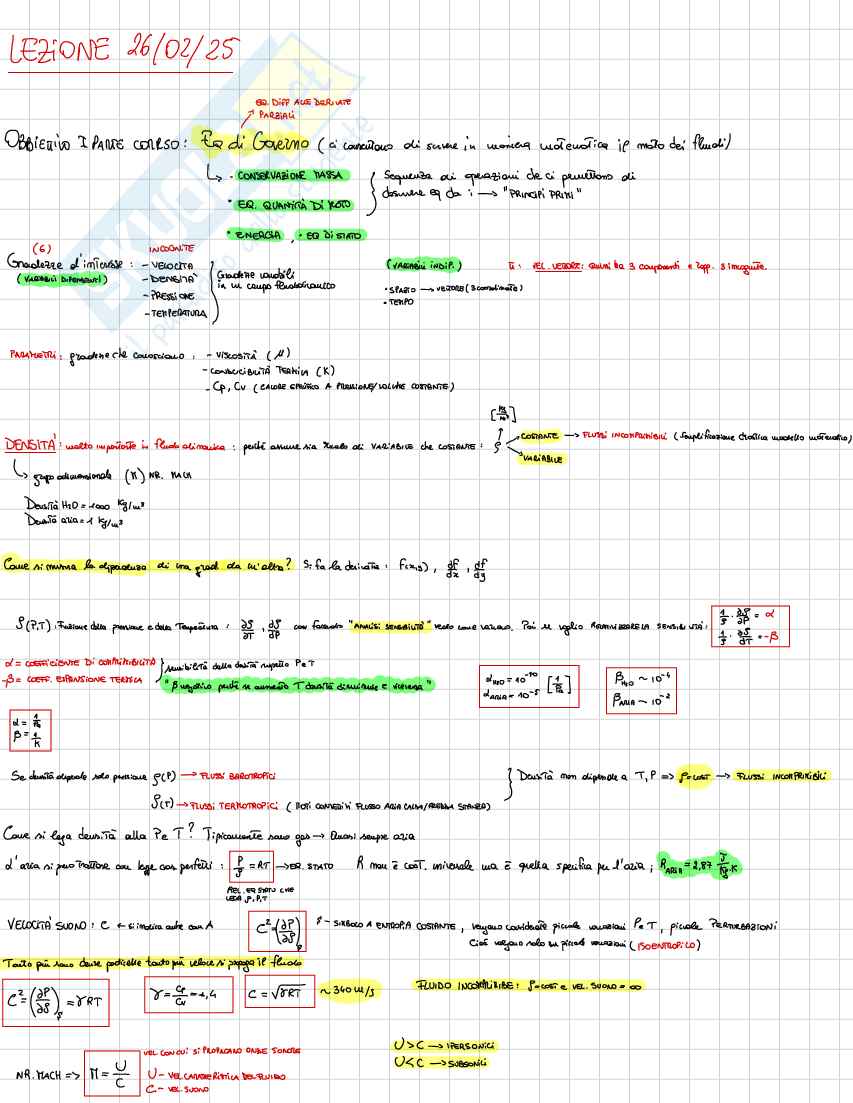 LEZIONE 26/02/25
EQ. DIFF ALLE DERIVATE
PARZIALI
OBBIETTIVO I PARTE CORSO: Eq di Governo (ci consentono di scrivere in maniera matematica il moto dei fluidi)
· CONSERVAZIONE MASSA
· EQ. QUANTITÀ DI MOTO
· ENERGIA, · EQ DI STATO
Sequenza di operazioni che ci permettono di
desumere eq da i → "PRINCIPI PRIMI"
(6)
Grandezze d'interesse:
(VARIABILI DIPENDENTI)
INCOGNITE
- VELOCITÀ
- DENSITÀ
- PRESSIONE
- TEMPERATURA
Grandezze variabili
in un campo fluidodinamico
(VARIABILI INDIP.)
· SPAZIO → VETTORE (3 coordinate)
· TEMPO
u: VEL. VETTORE: quindi ha 3 componenti e rapp. 3 incognite.
PARAMETRI: grandezze che conosciamo: - VISCOSITÀ (μ)
- CONDUCIBILITÀ TERMICA (K)
- Cp, Cv (CALORE SPECIFICO A PRESSIONE/VOLUME COSTANTE)
[Kg/m³]
DENSITÀ: molto importante in fluidodinamica: perché assume sia ruolo di VARIABILE che COSTANTE: ρ
COSTANTE → FLUSSI INCOMPRIMIBILI (Semplificazione drastica modello matematico)
VARIABILE
→ gruppo adimensionale (M) NR. MACH
Densità H2O = 1000 Kg/m³
Densità aria = 1 Kg/m³
Come si misura la dipendenza di una grand da un'altra? Si fa la derivata: F(x,y), df/dx, df/dy
ρ(P,T): Funzione della pressione e della Temperatura: ∂ρ/∂T, ∂ρ/∂P con facendo "ANALISI SENSIBILITÀ" vedo come variano. Poi se voglio RELATIVIZZARE LA SENSIBILITÀ:
1/ρ · ∂ρ/∂P = α
1/ρ · ∂ρ/∂T = -β
α = COEFFICIENTE DI COMPRIMIBILITÀ
-β = COEFF. ESPANSIONE TERMICA
sensibilità della densità rispetto P e T
"β negativo perché se aumento T densità diminuisce e viceversa"
αH2O = 10⁻¹⁰
αARIA = 10⁻⁵ [1/Pa]
βH2O ~ 10⁻⁴
βARIA ~ 10⁻²
α = 1/Pa
β = 1/K
Se densità dipende solo pressione ρ(P) → FLUSSI BAROTROPICI
ρ(T) → FLUSSI TERMOTROPICI (MOTI CONVETTIVI FLUSSO ARIA CALDA/FREDDA STANZA)
Densità non dipende da T, P => ρ=COST → FLUSSI INCOMPRIMIBILI
Come si lega densità alla P e T? Tipicamente sono gas → Quasi sempre aria
L'aria si può trattare con legge gas perfetti: P/ρ = RT → EQ. STATO R non è COST. universale ma è quella specifica per l'aria; RARIA = 2,87 J/Kg·K
REL. EQ STATO CHE
LEGA ρ, P, T
VELOCITÀ SUONO: C ← si indica anche con A
C² = (∂P/∂ρ)s
s - SIMBOLO A ENTROPIA COSTANTE, vengono considerate piccole variazioni P e T, piccole PERTURBAZIONI
Ciò vengono solo su piccole variazioni (ISOENTROPICO)
Tanto più sono dense particelle tanto più veloce si propaga il fluido
C² = (∂P/∂ρ)s = γRT
γ = Cp/Cv = 1,4
C = √γRT ~ 340 m/s
FLUIDO INCOMPRIMIBILE: ρ=COST e VEL. SUONO = ∞
NR. MACH => M = U/C
VEL CON CUI SI PROPAGANO ONDE SONORE
U - VEL CARATTERISTICA DEL FLUIDO
C - VEL. SUONO
U > C → IPERSONICI
U < C → SUBSONICI